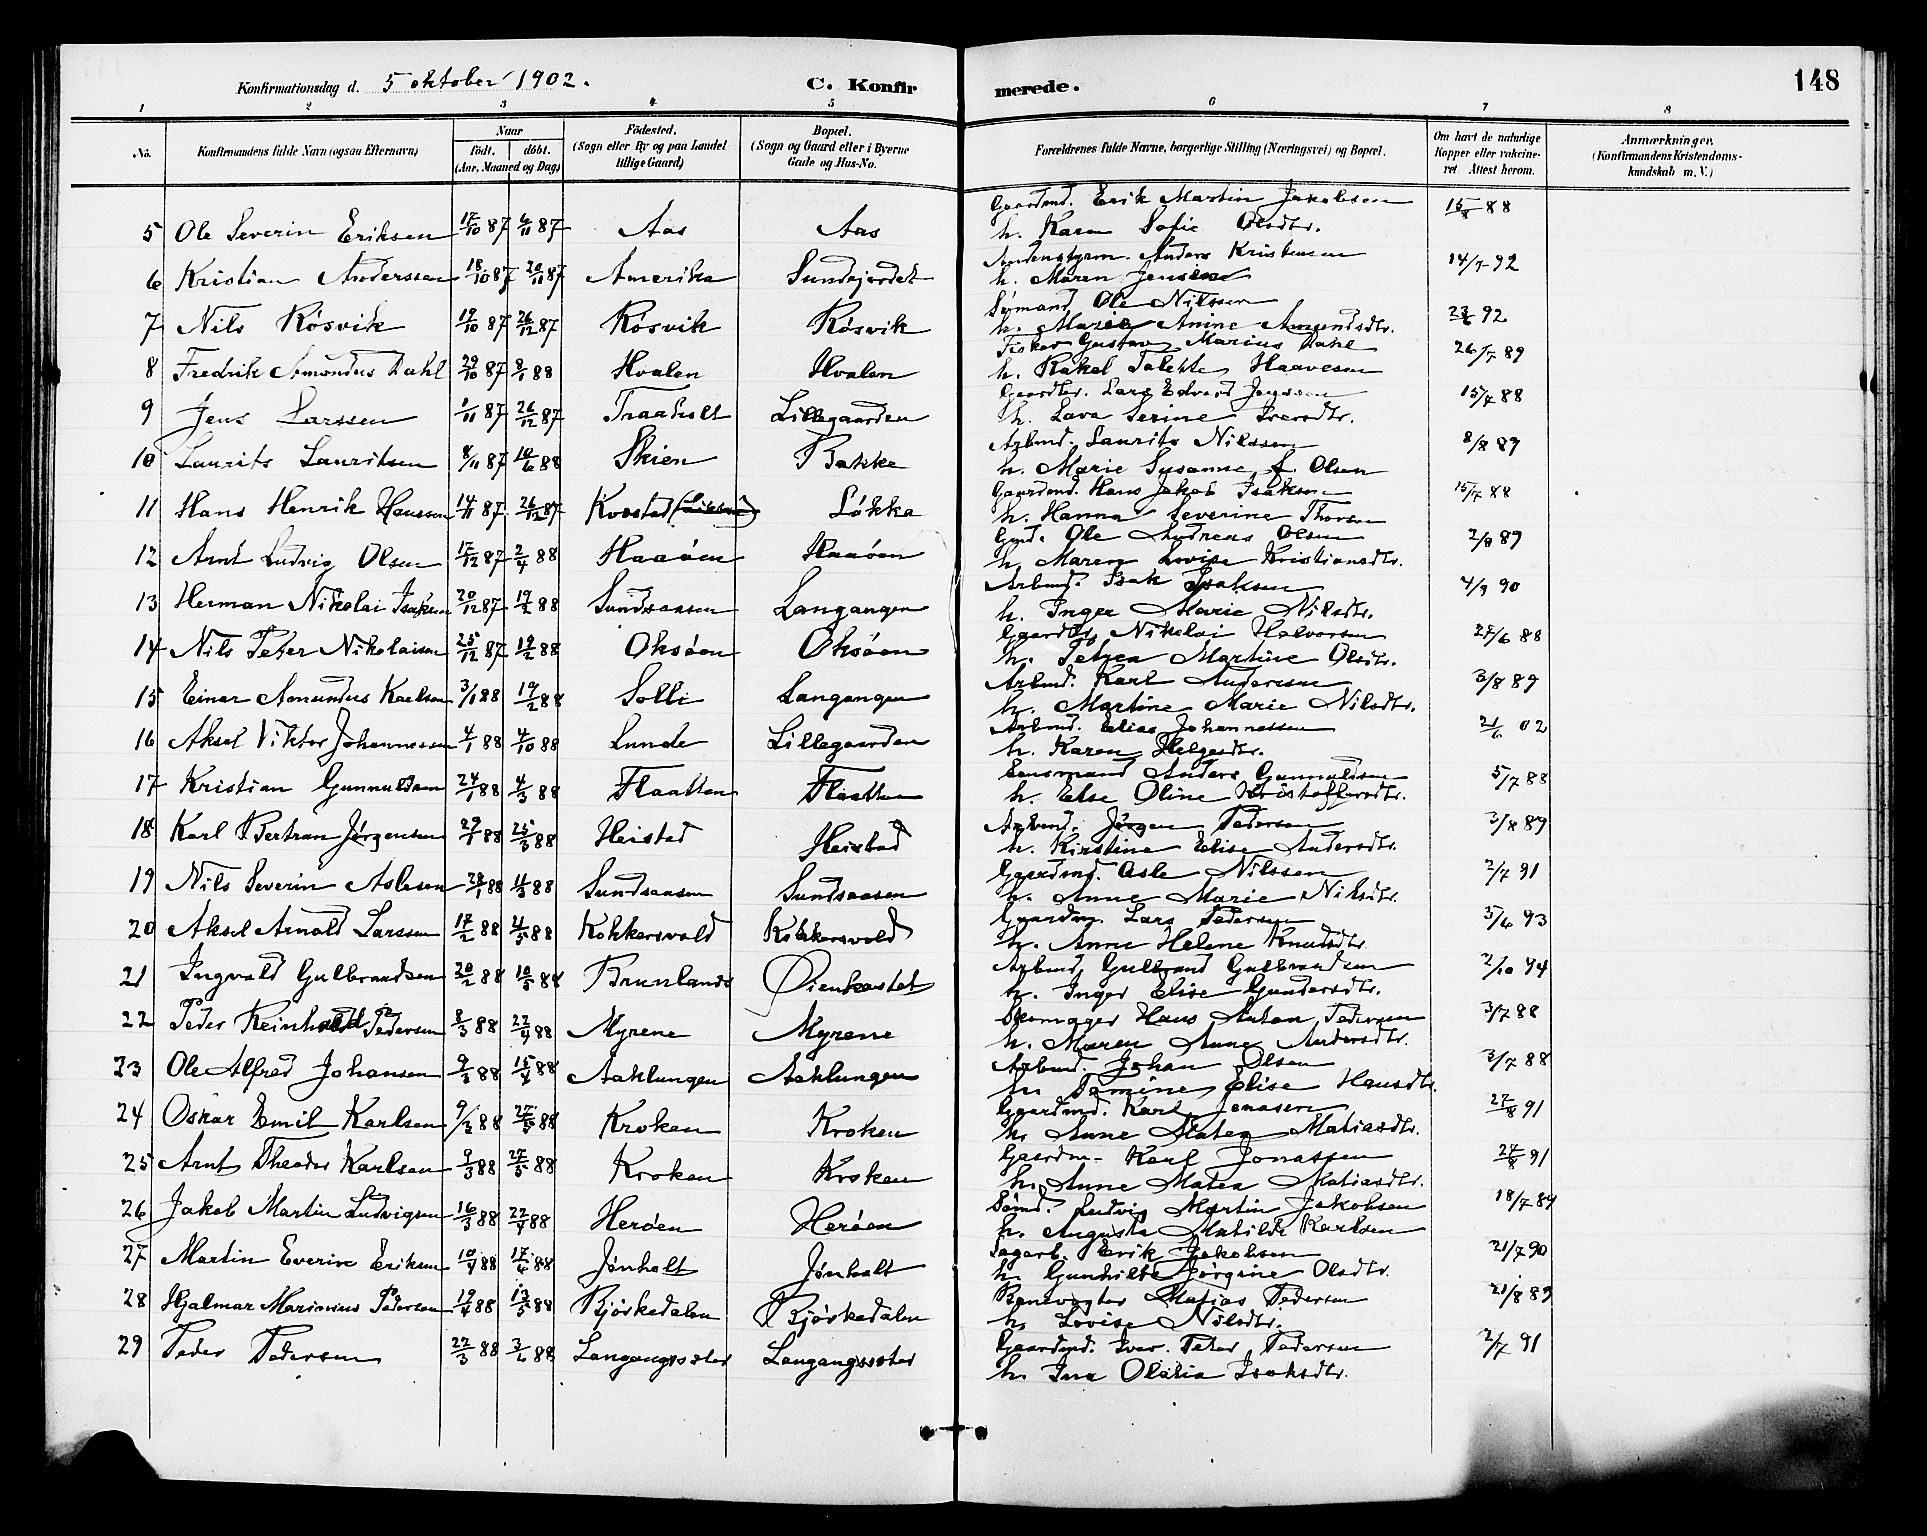 Konfirmationsdag d. 5 oktober 1902. C. Konfirmerede. 148
1 2 3 4 5 6 7 8
No. Konfirmandens fulde Navn (ogsaa Efternavn) Naar født. døbt. (Aar, Maaned og Dag) Fødested. (Sogn eller By og paa Landet tillige Gaard) Bopæl. (Sogn og Gaard eller i Byerne Gade og Hus-No. Forældrenes fulde Navne, borgerlige Stilling (Næringsvei) og Bopæl. Om havt de naturlige Kopper eller vakcineret. Attest herom. Anmærkninger. (Konfirmandens Kristendomskundskab m. V.)
5 Ole Severin Eriksen 17/10 87 6/11 87 Aas Aas Gaardmd. Erik Martin Jakobsen 15/8 88
h. Karen Sofie Olsdtr.
6 Kristian Anderssen 18/10 87 20/11 87 Amerika Sundsjordet Anders Kristensen 14/7 92
h. Maren Jensen
7 Nils Røsvik 19/10 87 26/12 87 Røsvik Røsvik Sømand Ole Nilssen 23/6 92
h. Maria Anine Amundsdtr.
8 Fredrik Amundus Dahl 29/10 87 8/1 88 Hvalen Hvalen Fisker Gustav Marius Dahl 26/7 89
h. Rakel Talette Haavesen
9 Jens Larssen 1/11 87 26/12 87 Traaholt Lillegaarden Gaardbr. Lars Edvard Jenssen 15/7 88
h. Lava Serine Iversdtr.
10 Laurits Lauritsen 8/11 87 10/6 88 Skien Bakke Arbmd. Laurits Nilssen 8/8 89
h. Marie Susanne f. Olsen
11 Hans Henrik Hanssen 14/11 87 26/12 87 Kvestad Løkka Gaardmd. Hans Jakob Isaksen 15/7 88
h. Hanna Severine Thorsen
12 Arnt Ludvig Olsen 17/12 87 2/4 88 Haaøen Haaøen Gmd. Ole Andreas Olsen 2/8 89
h. Maren Lovise Kristiansdtr.
13 Herman Nikolai Isaksen 20/12 87 19/2 88 Sundsaasen Langangen Arbmd. Isak Isaksen 4/9 90
h. Inger Marie Nilsdtr.
14 Nils Peter Nikolaisen 25/12 87 19/2 88 Oksøen Oksøen Gaardbr. Nikolai Halvorsen 27/6 88
h. Petrea Martine Olsdtr.
15 Einar Amundus Karlsen 3/1 88 19/2 88 Solli Langangen Arbmd. Karl Andersen 3/8 89
h. Martine Marie Nilsdtr.
16 Aksel Viktor Johannessen 4/1 88 4/10 88 Lunde Lillegaarden Arbmd. Elias Johannessen 21/6 02
h. Karen Helgesdtr.
17 Kristian Gunnuldsen 24/1 88 4/3 88 Flaatten Flaatten Eensmand Anders Gunnuldsen 5/7 88
h. Else Oline Kristoffersdtr.
18 Karl Bertran Jørgensen 29/1 88 25/3 88 Heistad Heistad Arbmd. Jørgen Pedersen 3/8 89
h. Kirstine Elise Andersdtr.
19 Nils Severin Aslesen 28/1 88 11/3 88 Sundsaasen Sundsaasen Gaardmd. Asle Nilssen 2/7 91
h. Anne Marie Nilsdtr.
20 Aksel Arnold Larssen 17/2 88 11/5 88 Kokkersvold Kokkersvold Gaardm. Lars Pedersen 3/6 93
h. Anne Helene Knudsdtr.
21 Ingvald Gulbrandsen 20/2 88 10/5 88 Brunlanes Øienkastet Arbmd. Gulbrand Gulbrandsen 2/10 94
h. Inger Elise Gundersdtr.
22 Peder Reinholdt Pedersen 8/3 88 22/4 88 Myrene Myrene Skomager Hans Anton Pedersen 3/7 88
h. Maren Anne Andersdtr.
23 Ole Alfred Johansen 9/3 88 15/4 88 Aaklungen Aaklungen Arbmd. Johan Olsen 3/7 88
h. Tomine Elise Hansdtr.
24 Oskar Emil Karlsen 9/3 88 27/5 88 Kroken Kroken Gaardmd. Karl Jonasen 27/8 91
h. Anne Matea Matiasdtr.
25 Arnt Theodor Karlsen 9/3 88 27/5 88 Kroken Kroken Gaardm. Karl Jonassen 27/8 91
h. Anne Matea Matiasdtr.
26 Jakob Martin Ludvigsen 16/3 88 22/4 88 Herøen Herøen Sømd. Ludvig Martin Jakobsen 18/7 89
h. Augusta Matilde Karlsen
27 Martin Everin Eriksen 10/4 88 17/6 88 Jønholt Jønholt Sagarb. Erik Jakobsen 21/7 90
h. Gunhilte Jørgine Olsdtr.
28 Hjalmar Marinius Pedersen 19/4 88 13/5 88 Bjørkedalen Bjørkedalen Banevogter Matias Pedersen 21/8 89
h. Lovise Nilsdtr.
29 Peder Pedersen 22/3 88 3/6 88 Langangsseter Langangsseter Gaardmd. Iver Peter Pedersen 2/7 91
h. Ina Olalia Isaksdtr.